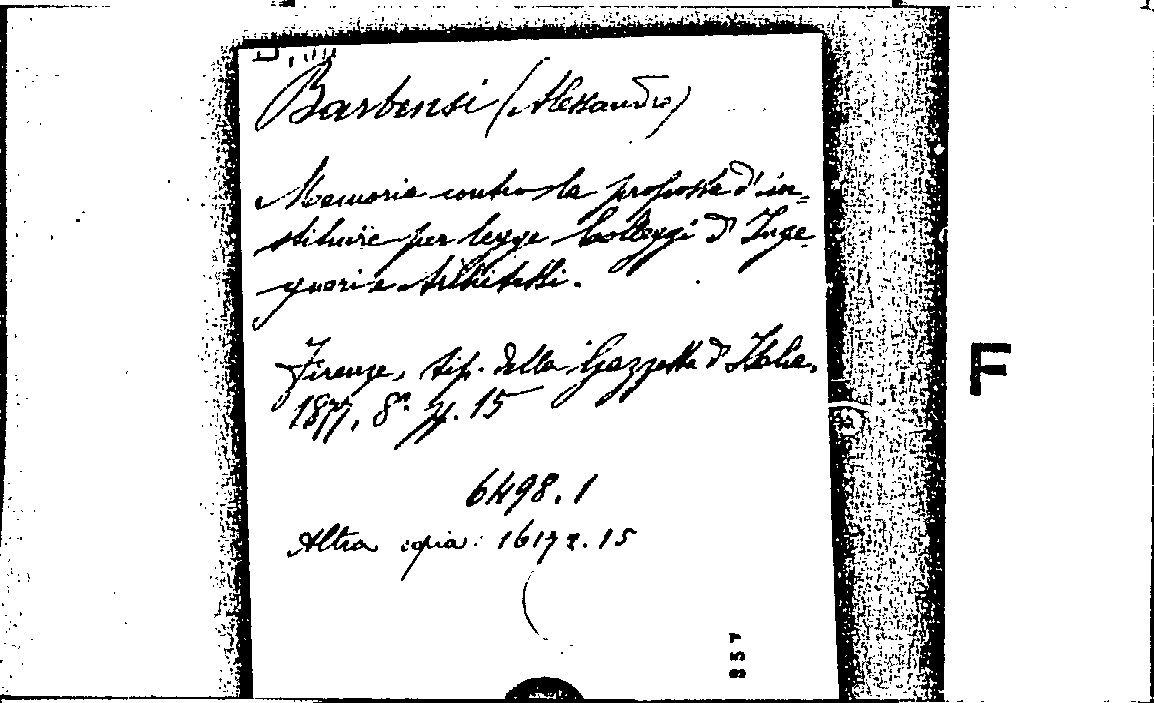 Barbensi (Alessandro)
Memoria contro la proposta d'in=
stituire per legge Collegi d'Inge-
gneri e Architetti.
Firenze, tip. della Gazzetta d'Italia,
1877, 8º. pp. 15
6498.1
Altra copia: 16172.15
F
857